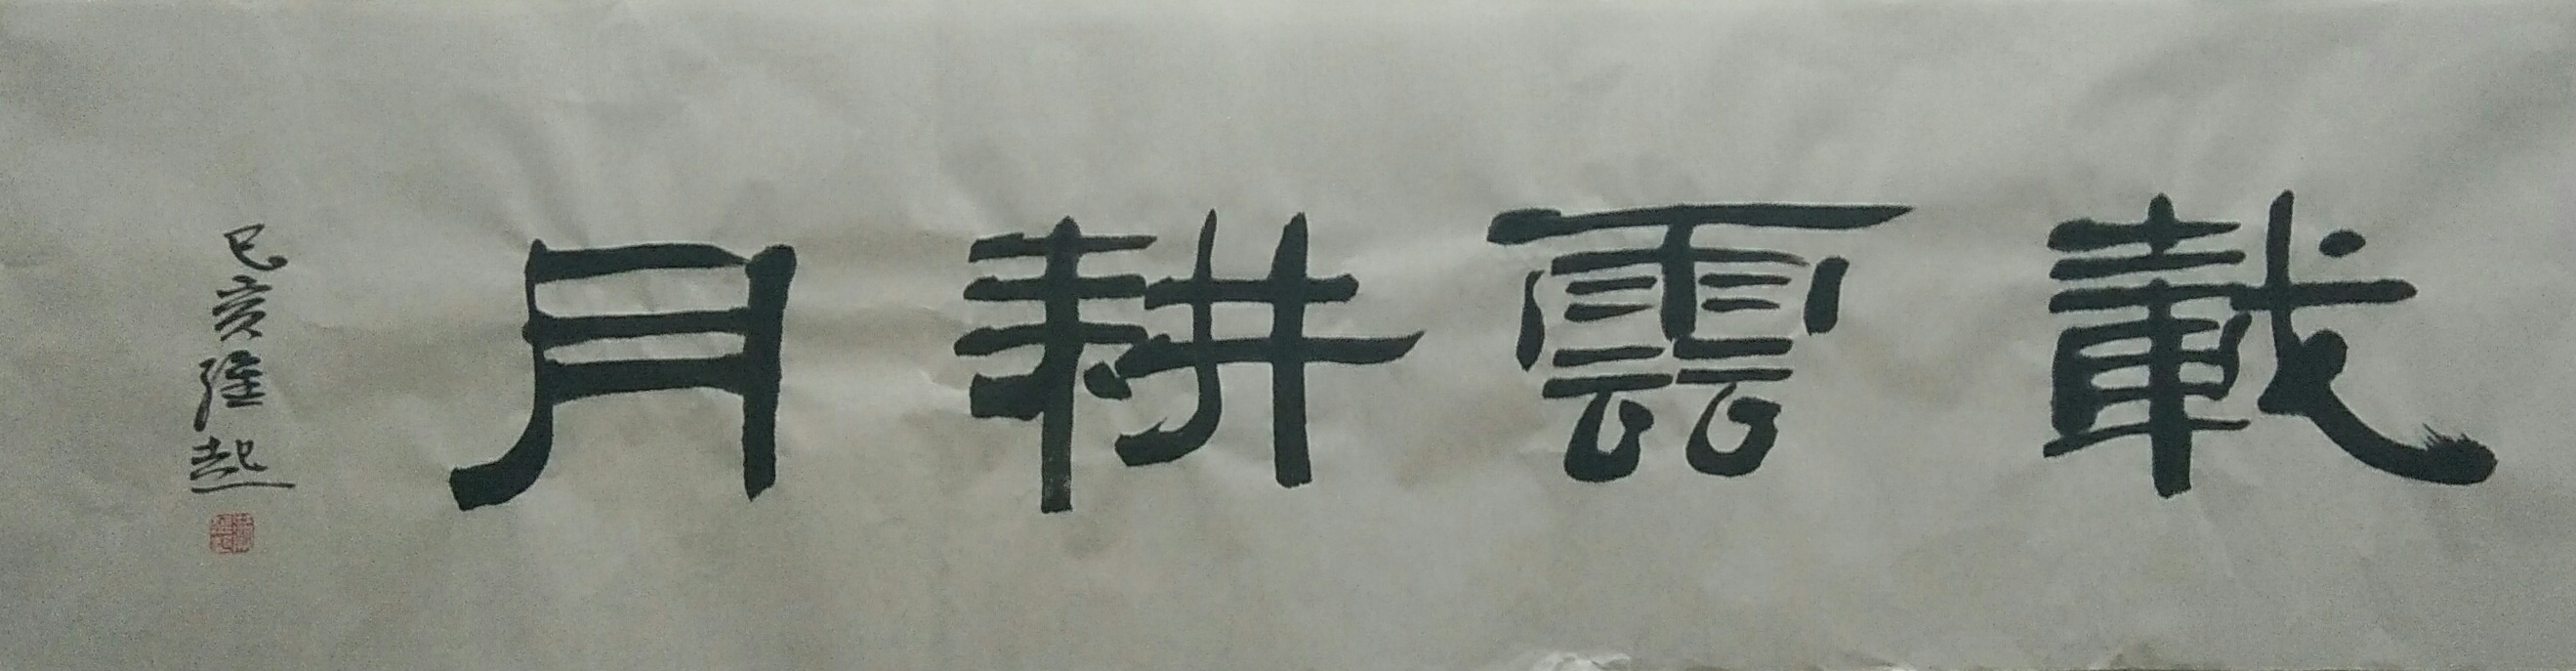 載雲耕月
己亥維起